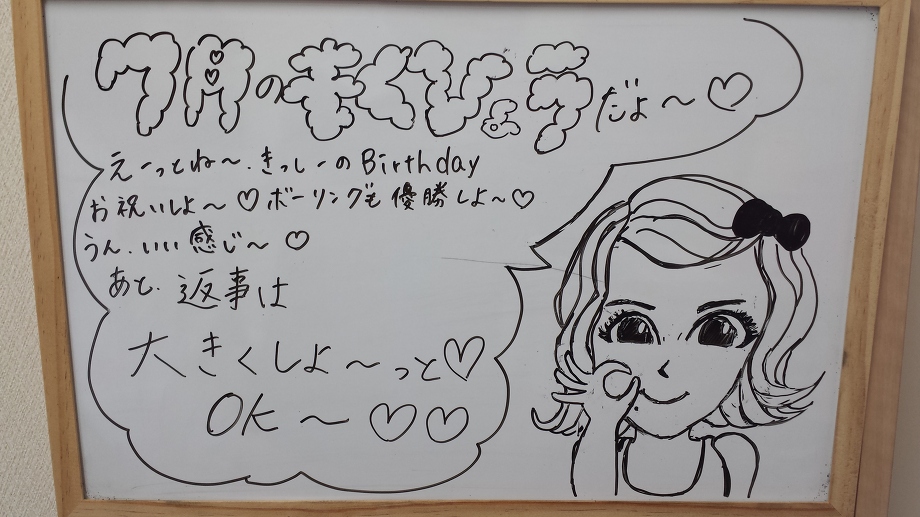 7月のもくひょうだよ〜♡
えーっとね〜.きっしーのBirthday
お祝いしよ〜♡ボーリングも優勝しよ〜♡
うん.いい感じ〜♡
あと.返事は
大きくしよ〜っと♡
OK〜♡♡